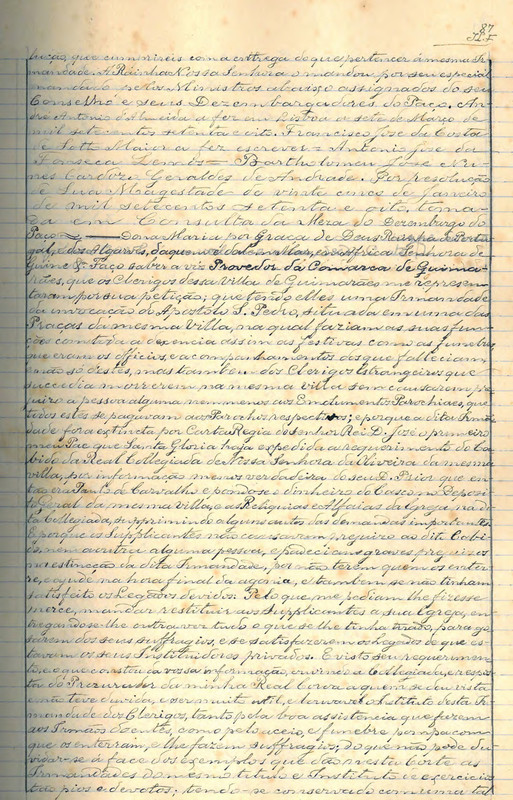 87
bução que cummrireis com a enttrega do que pertencer á mesma Ir
mandade. A Rainha Nossa Senhora o mandou por seu especial
mandado pelos Ministros abaixo assignados do seu
Conselho e seus Dezembargadores do Paço. An
dre Antonio d'Almeida a fez em Lisboa a sete de Março de
mil setecentos setenta e oito. Francisco José da Costa
de Sotto Maior a fez escrever = Antonio José da
Fonseca Lemos = Bartholomeu José Nu
nes Cardozo Geraldes de Andrade. Por resolução
de Sua Magestade de vinte cinco de Janeiro
de mil setecentos setenta e oito, toma
da em Consulta da Meza do Dezembargo do
Paço. Dona Maria por Graça de Deus Rainha de Portu
gal, e dos Algarves, daquem e dalem Mar, em Africa Senhora de
Guiné &. Faço saber a vós Provedor da Comarca de Guima
rães, que os Clerigos dessa villa de Guimarães me represen
taram por sua petição; que tendo elles uma Irmandade
da invocação do Apostolo S. Pedro, situada em uma das
Praças da mesma Villa, na qual faziam as suas func
ções com toda a decencia assim as festivas como as funebres,
que eram os officios, e acompanhamentos dos que falleciam,
não só destes, mas tambem dos Clerigos Estrangeiros que
succedia morrerem na mesma villa sem causarem pre
juizo a pessoa alguma nem menos aos Emolumentos Parochiaes, que
todos estes se pagavam aos Parochos respectivos; e porque a dita Irman
dade fora extincta por Carta Regia do Senhor Rei D. José o primeiro
meu Pae que Santa Gloria haja expedida a requerimento do Ca
bido da Real Collegiada de Nossa Senhora da Oliveira da mesma
villa, por informação menos verdadeira do seu D. Prior que en
tão era Paulo de Carvalho e pondo-se o dinheiro do Casco no Deposi
to Geral da mesma villa, e as Reliquias e Alfaias da Igreja na di
ta Collegiada, supprimindo alguns autos das demandas importantes.
E porque os Supplicantes não causaram prejuizo ao dito Cabi
do, nem a outra alguma pessoa, e padeciam graves prejuizos
na extincção da dita Irmandade, por não terem quem os enter
re, e ajude na hora final da agonia, e tambem se não tinham
satisfeito os Legados devidos. Pelo que me pediam lhe fizesse
merce, mandar restituir aos Supplicantes a sua Igreja, en
tregando-se-lhe outra vez tudo o que se lhe tinha tirado, para go
sarem dos seus suffragios, e se satisfazerem os Legados de que es
tavam os seus Instituidores privados. E visto seu requerimen
to, e o que constou da vossa informação, ouvindo a Collegiada, e respos
ta do Procurador da minha Real Coroa a quem se deu vista
e não teve duvida, e ser muito util, e louvavel o Instituto desta Ir
mandade dos Clerigos, tanto pela boa assistencia que fazem
aos Irmãos doentes, como pelo aceio, e funebre pompa com
que os enterram, e lhe fazem suffragios; do que não pode du
vidar-se á face dos exemplos que dão nesta Corte as
Irmandades do mesmo titulo e Instituto e exercicios
tão pios e devotos; tendo-se conservado com uma tal